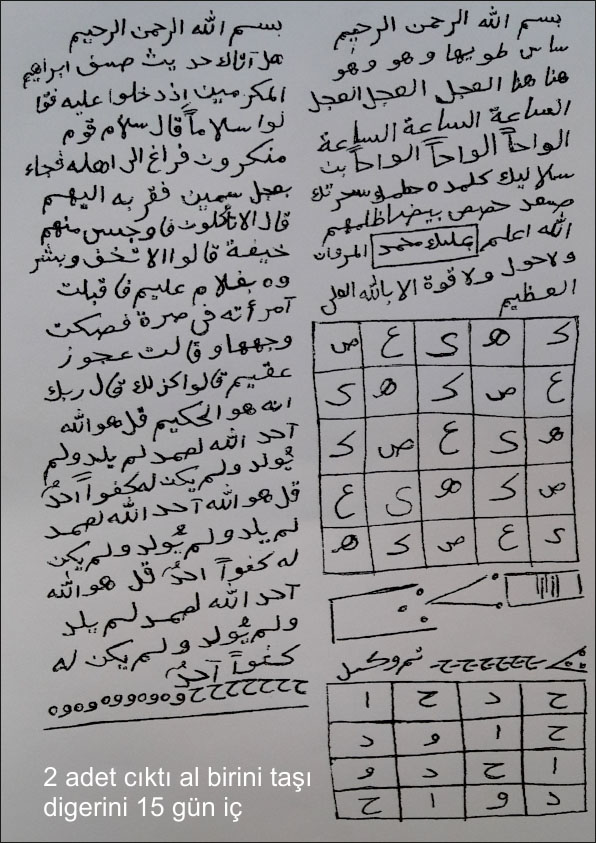 بسم الله الرحمن الرحيم
ساس طويها و هو و هو
هنا هنا العجل العجل العجل
الساعة الساعة الساعة
الواحاً الواحاً الواحاً
صعد حصص بيضا ظلمهم
الله اعلم بملك محمد
ولا حول ولا قوة الا بالله العلي
العظيم
ك ه ي ع ص
ع ص ك ه ي
ه ي ع ص ك
ص ك ه ي ع
ي ع ص ك ه
ح د ح ا
ح ا و د
ا ح د و
د و ا ح
بسم الله الرحمن الرحيم
هل آتاك حديث ضيف ابراهيم
المكرمين إذ دخلوا عليه فقا
لوا سلاماً قال سلام قوم
منكرون فراغ الى اهله فجاء
بعجل سمين فقربه اليهم
قال الا تأكلون فا وجس منهم
خيفة قالوا الا تخف وبشر
وه بغلام عليم فا قبلت
آمرأته في صرة فصكت
وجهها و قالت عجوز
عقيم قالوا كزلك قال ربك
انه هو الحكيم قل هو الله
آحد الله لصمد لم يلد ولم
يُولد ولم يكن له كفواً احدٌ
قل هو الله آحد الله لصمد
لم يلد ولم يُولد ولم يكن
له كفواً احدٌ قل هو الله
آحد الله لصمد لم يلد
ولم يُولد ولم يكن له
كفواً آحدٌ
2 adet cıktı al birini taşı
digerini 15 gün iç